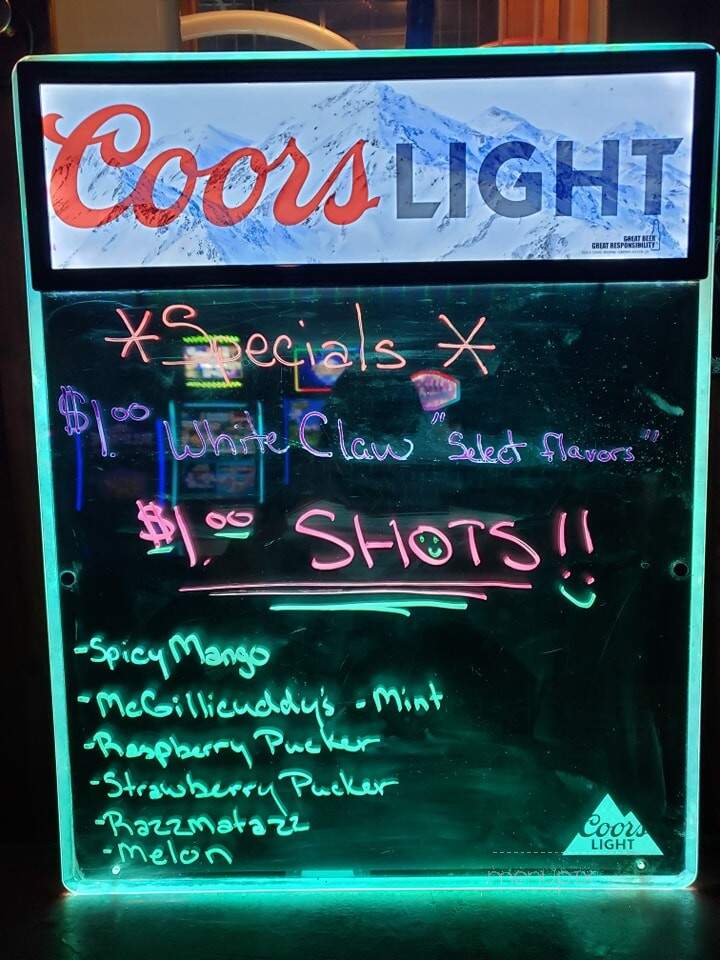 Coors LIGHT
GREAT BEER
GREAT RESPONSIBILITY
*Specials*
$1.00 White Claw "Select flavors"
$1.00 SHOTS!!
-Spicy Mango
-McGillicuddy's - Mint
-Raspberry Pucker
-Strawberry Pucker
-Razzmatazz
-Melon
Coors
LIGHT